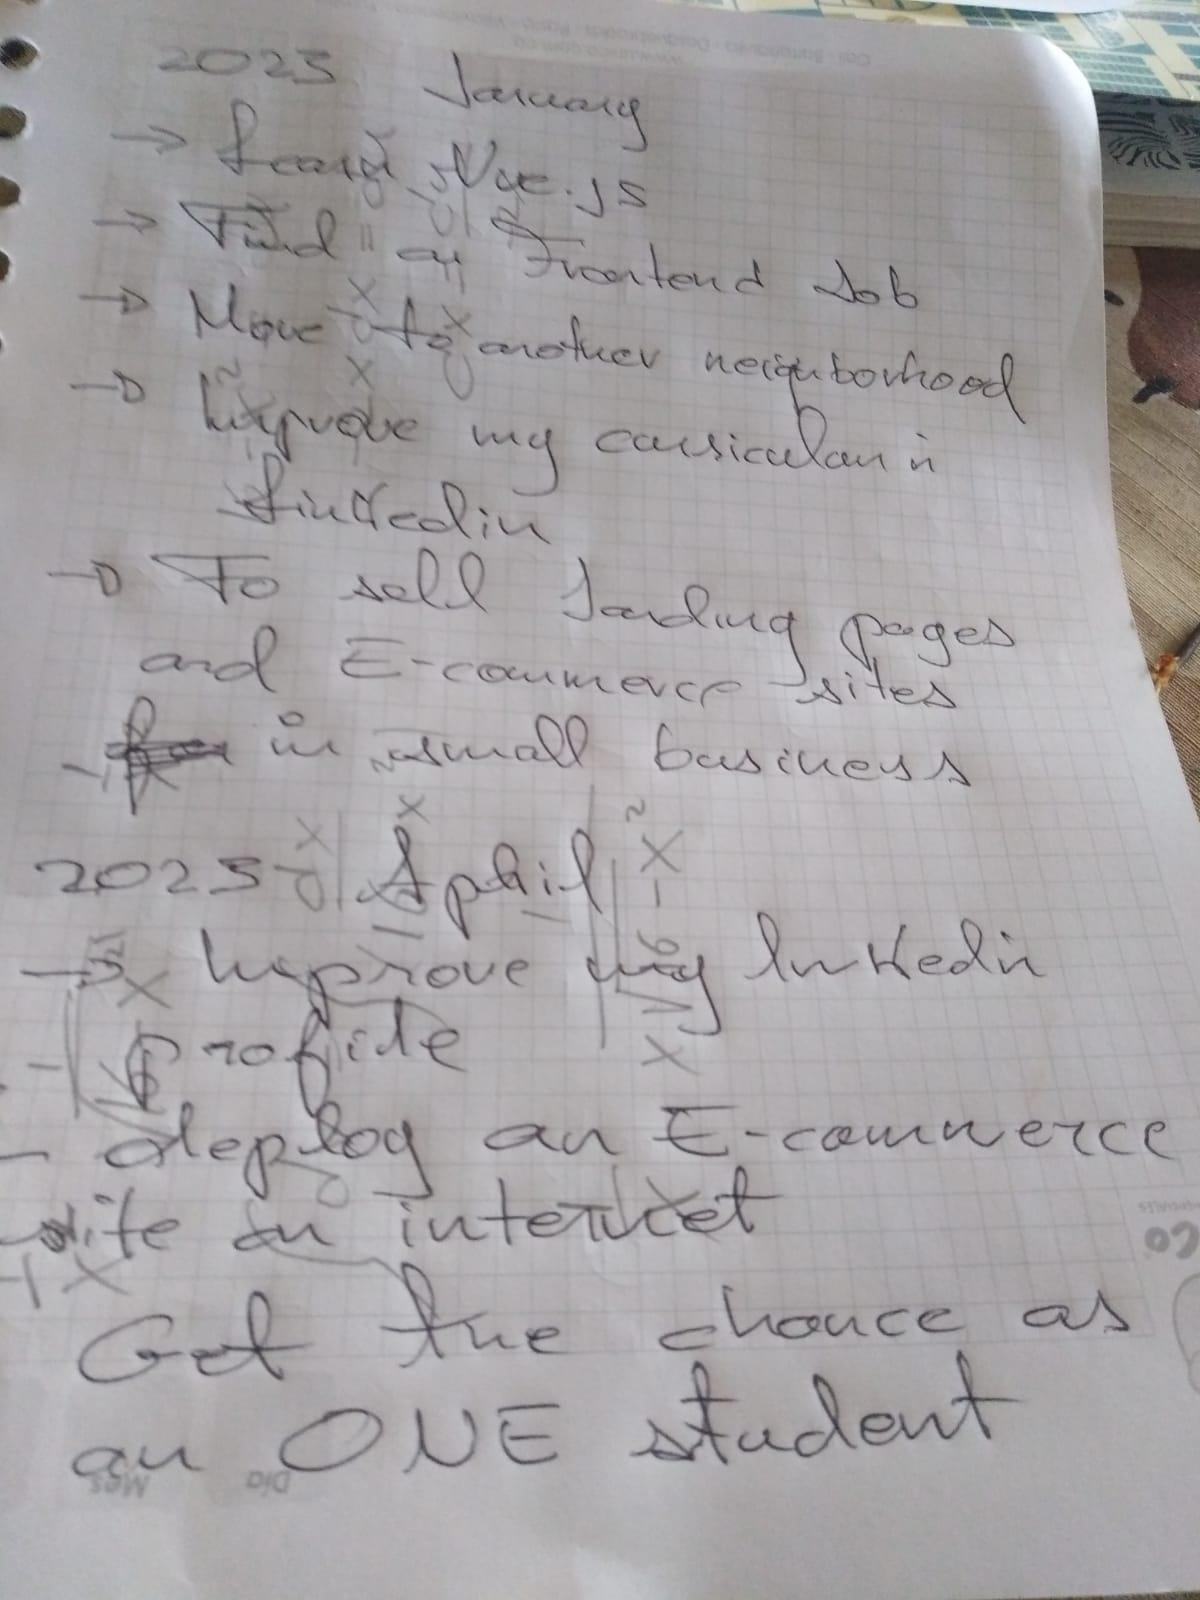 2023 January
→ Learn Vue.js
→ Find a Frontend Job
→ Move to another neighborhood
→ Improve my in
Linkedin
→ To sell landing pages
and E-commerce sites
in small business
2023 April
→ Improve my linkedin
profile
- deploy an E-commerce
site on internet
Get the chance as
an ONE student
Dia Mes